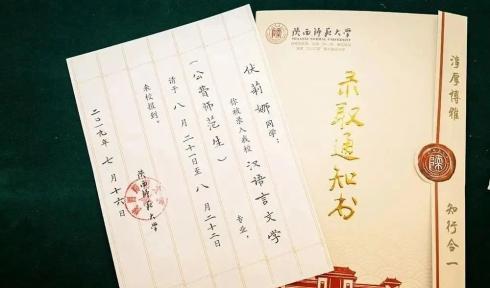 伏莉娜同学:
你被录入我校 汉语言文学
(公费师范生) 专业,
请于八月二十一日至八月二十二日
来校报到。
陕西师范大学
二〇一九年七月十六日
陕西师范大学
SHAANXI NORMAL UNIVERSITY
录取通知书
淳厚博雅
知行合一